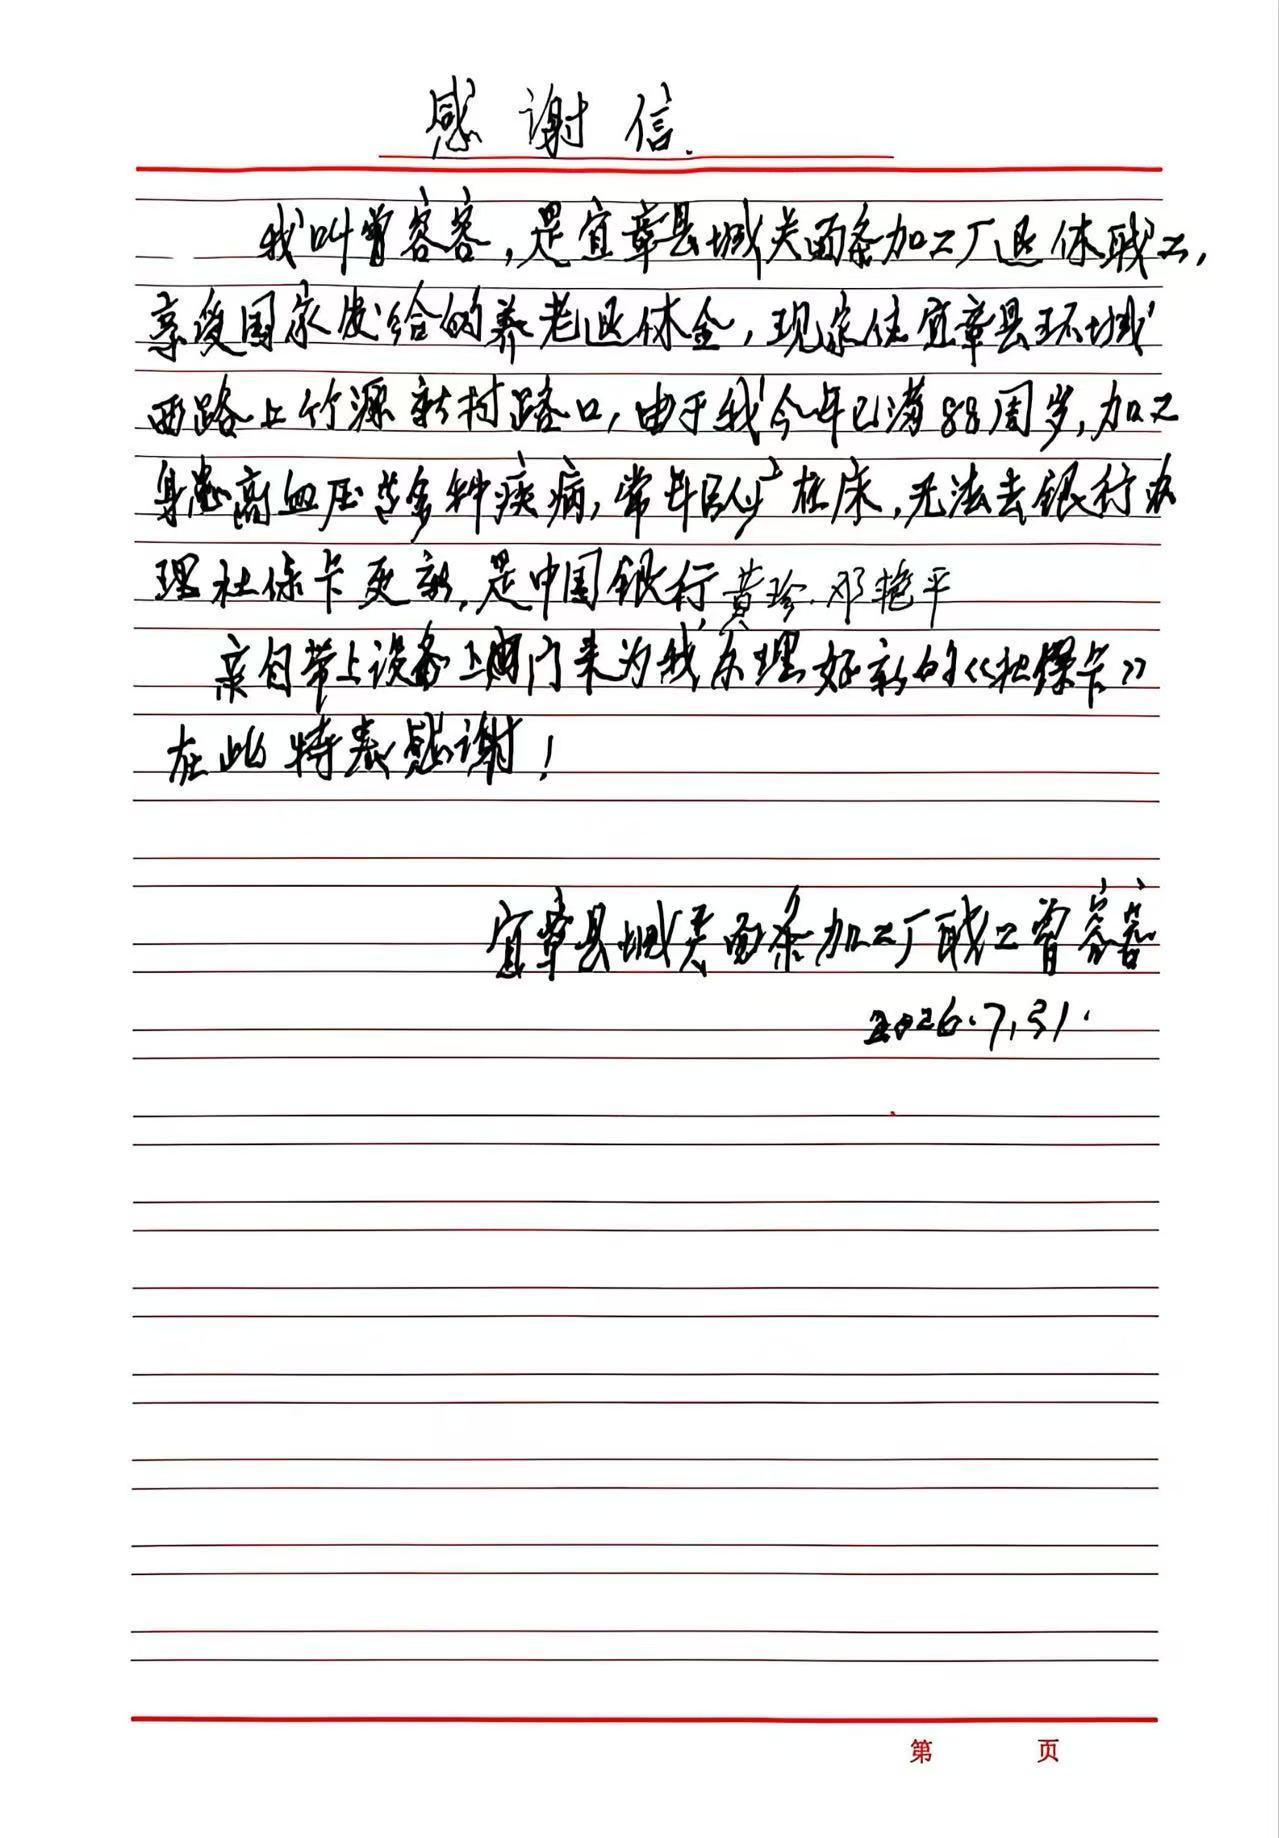 感谢信.
我叫曾容容，是宜章县城关面条加工厂退休职工，
享受国家发给的养老退休金，现家住宜章县环城
西路上竹源新村路口，由于我今年已满88周岁，加之
身患高血压等多种疾病，常年卧 在床，无法去银行办
理社保卡更新，是中国银行，黄珍.邓艳平
亲自带上设备上门来为我办理好新的《社保卡》
在此特表感谢！
宜章县城关面条加工厂职工曾容容
2026.7,31.
第 页